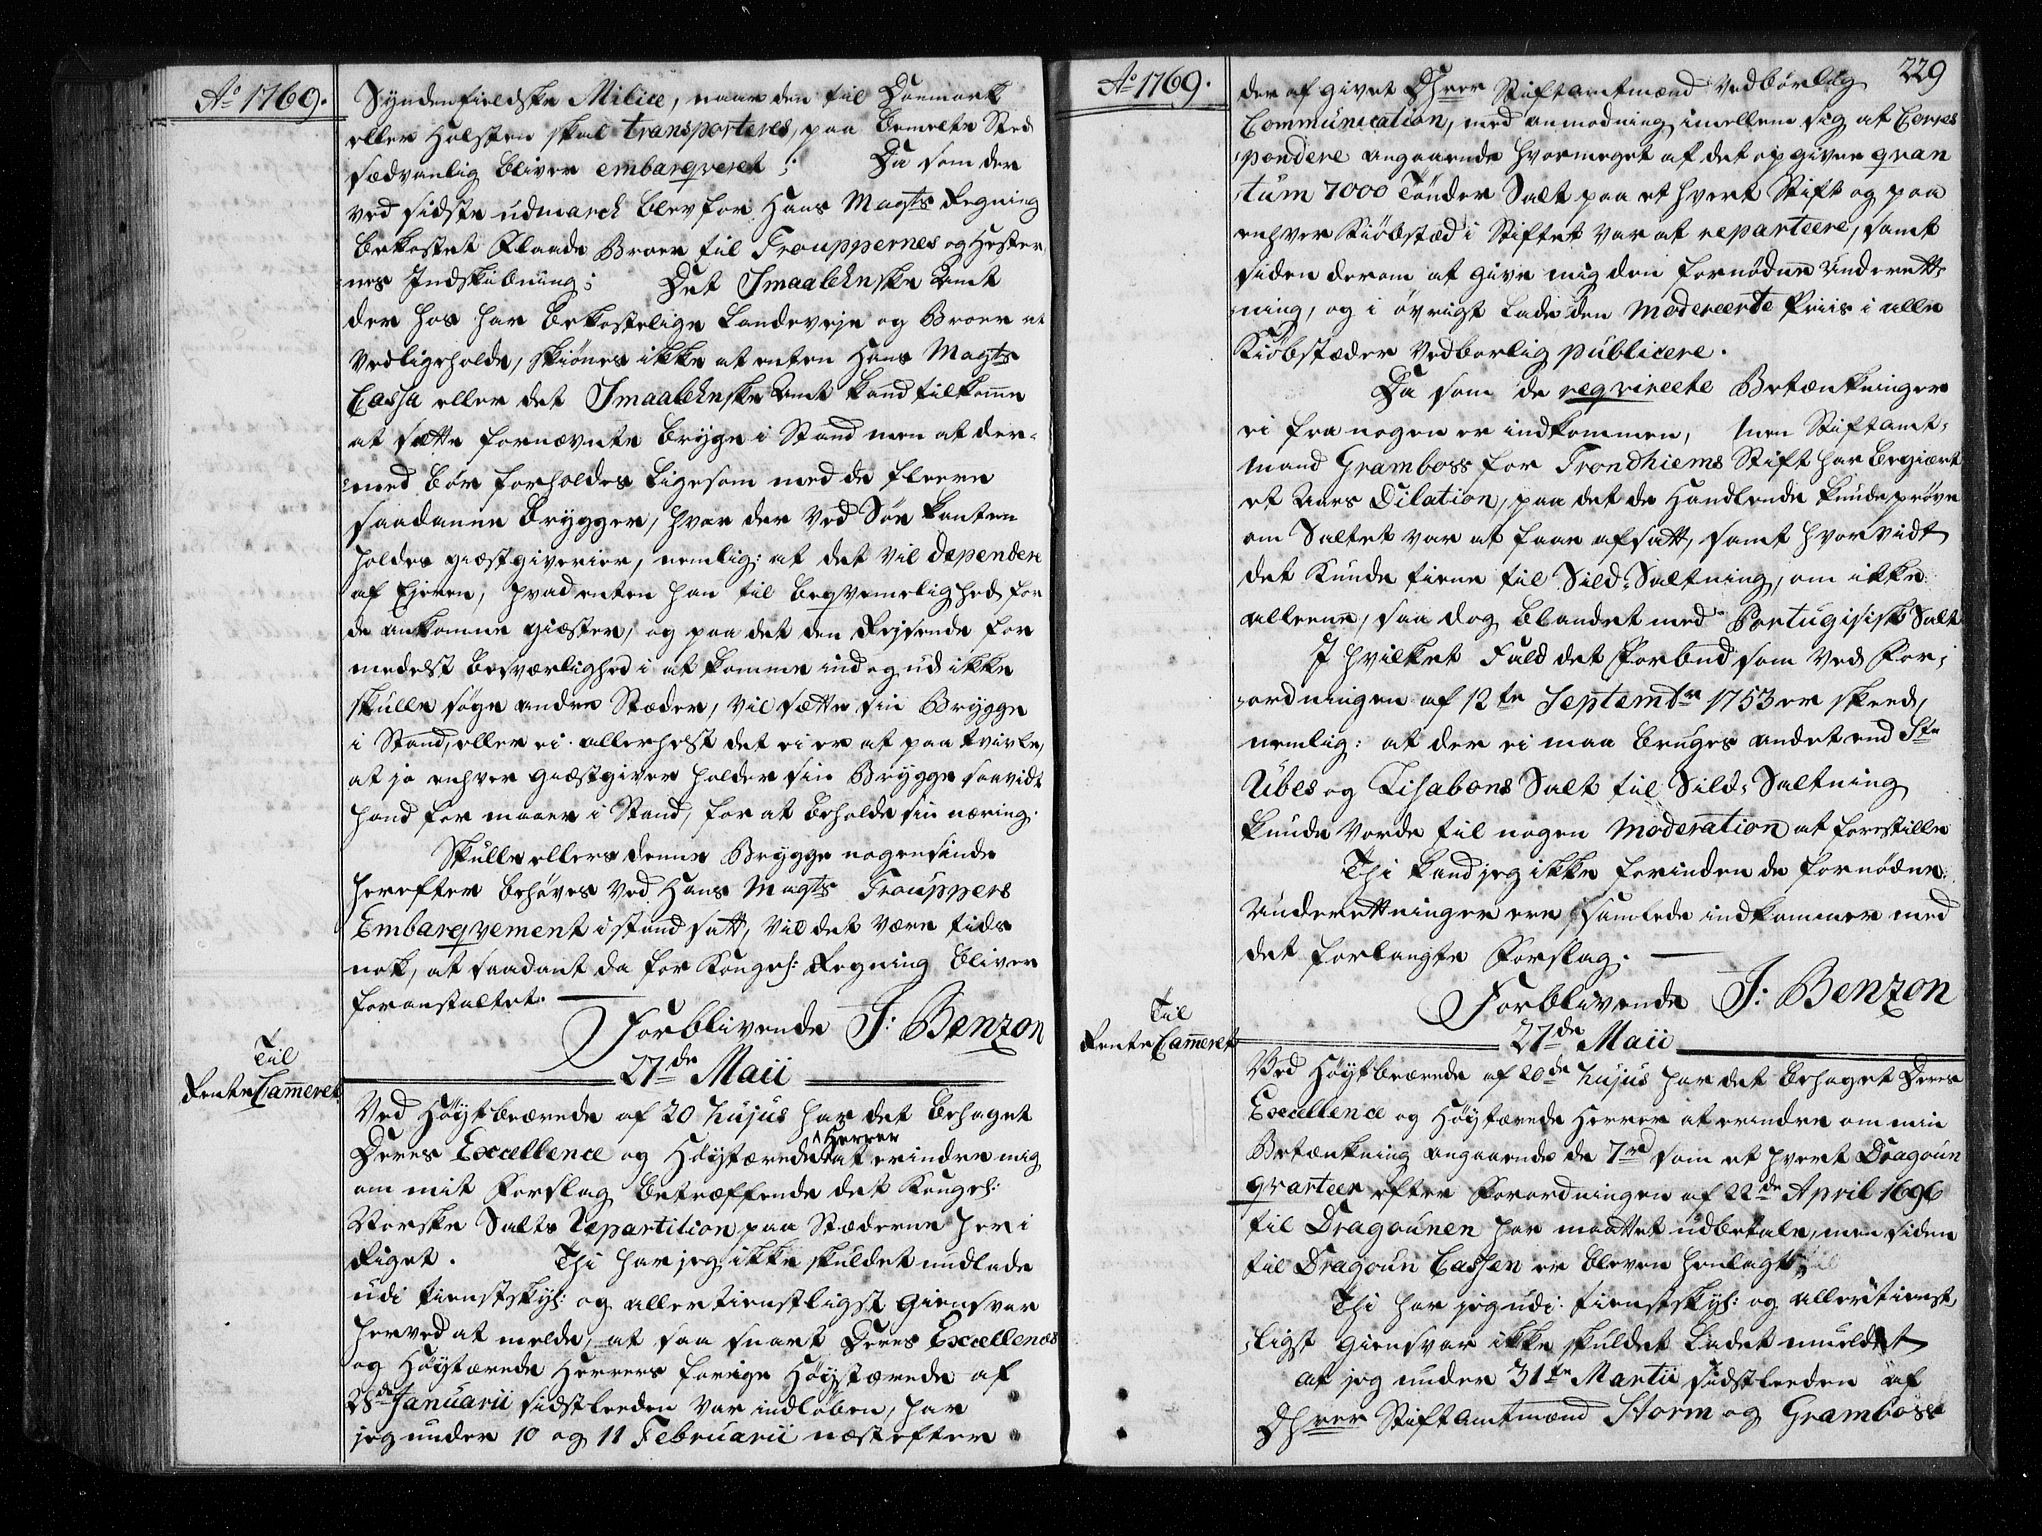 Ao 1769.
Syndenfieldske Milice, naar den til Danmark
eller Holsten skal transporteres, paa bemelte Sted
sædvanlig bliver embarqveret; Da som der
ved sidste udmarch blev for Hans Mayts Regning
bekostet Flaade Broer til Trouppernes og Hester,
nes Indskibning; Det Smaalehnske Amt
der hos har bekostelige Landeveje og Broer at
vedligeholde, skiønes ikke at enten Hans Mayts
Cassa eller det Smaalehnske Amt kand tilkomme
at sætte fornævnte brygge i Stand men at der-
med bør forholdes ligesom med de fleere
saadanne brygger, hvor der ved Søe kanten
holdes giæstgiverier, nemlig: at det vil dependere
af Ejeren, hvad enten han til beqvemelighed for
de ankomne giæster, og paa det den Rejsende for
medelst besværlighed i at komme ind og ud ikke
skulle søge andre Stæder, vil sætte sin Brygge
i Stand, eller ei. allerhelst det ei er at paa tvivle,
at jo enhver giæstgiver holder sin Brygge saavidt
hand formaaer i Stand, for at beholde sin næring.
Skulle ellers denne Brygge nogensinde
herefter behøves ved Hans Mayts Trouppers
Embarqvement i stand satt, vil det være tids
nok, at saadant da for Kongel: Regning bliver
foranstaltet.
Forblivende J: Benzon
27de Maii
Til
Rente Cammeret
Ved Høystbeærede af 20 hujus har det behaget
Deres Excellence og Höystærede Herrer at erindre mig
om mit Forslag betræffende det Kongel:
Norske Salts Repartition paa Stæderne her i
Riget. Thi har jeg ikke skuldet undlade
udi tienstskyl: og allertienstligst Giensvar
herved at melde, at saa snart Deres Excellences
og Høystærede Herrers forrige Høystærede af
28de Januarii sidstleeden var indløben, har
jeg under 10 og 11 Februarii næstefter
Ao 1769.
229
der af givet Dhrer Stiftamtmænd vedbørlig
Communication, med anmodning imellem sig at Corres
pondere angaaende hvormeget af det opgivne qvan
tum 7000 Tønder Salt paa et hvert Stift og paa
enhver Kiøbstæd i Stiftet var at reparteere, samt
siden derom at give mig den fornødne Underett-
ning, og i øvrigt lade den modereerte Priis i alle
Kiøbstæder vedbørlig publicere.
Da som de reqvireete Betænkninger
ei fra nogen er indkommen, men Stiftamt,
mand Gramboss for Trondhiems Stift har begiært
et Aars Dilation, paa det de Handlende kunde prøve
om Saltet var at faae afsatt, samt hvorvidt
det kunde tiene til Sild-Saltning, om ikke
alleene, saa dog blandet med Portugisisk Salt
I hvilket Fald det Forbud som ved For,
ordningen af 12te Septembr 1753 er skeed,
nemlig: at der ei maa bruges andet end Ste
Ubes og Lisabons Salt til Sild-Saltning
kunde vorde til nogen Moderation at forestille
Thi kand jeg ikke forinden de fornødne
Underettninger ere samlede indkommer med
det forlangte Forslag.
Forblivende J: Benzon
27de Maii
Til
Rente Cammeret
Ved Høystbeærede af 20de hujus har det behaget Deres
Excellence og Høystærede Herrer at erindre om min
Betænkning angaaende de 7rd som et hvert Dragoun
qvarteer efter Forordningen af 22de April 1696
til Dragounen har maattet udbetale, men siden
til Dragoun Cassen er bleven henlagt.
Thi har jeg udi tienstskyl: og allertienst,
ligst giensvar ikke skuldet ladet umeldt
at jeg under 31te Martii sidstleeden af
Dhrer Stiftamtmænd Storm og Gramboss